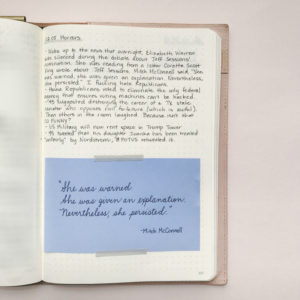 - Woke up to the news that overnight, Elizabeth Warren
was silenced during the debate about Jeff Sessions'
nomination. She was reading from a letter Coretta Scott
King wrote about Jeff Sessions. Mitch McConnell said "She
was warned, she was given an explanation. Nevertheless,
she persisted." I fucking hate Republicans.
- House Republicans voted to eliminate the only federal
agency that ensures voting machines can't be hacked.
- 45 suggested destroying the career of a TX state
senator who opposes
Then others in the room laughed. Because isn't that
so funny?
- US Military will now rent space in Trump Tower
- 45 tweeted that his daughter Ivanka has been treated
"unfairly" by Nordstrom, & POTUS retweeted it.
"She was warned.
She was given an explanation.
Nevertheless, she persisted."
-Mitch McConnell